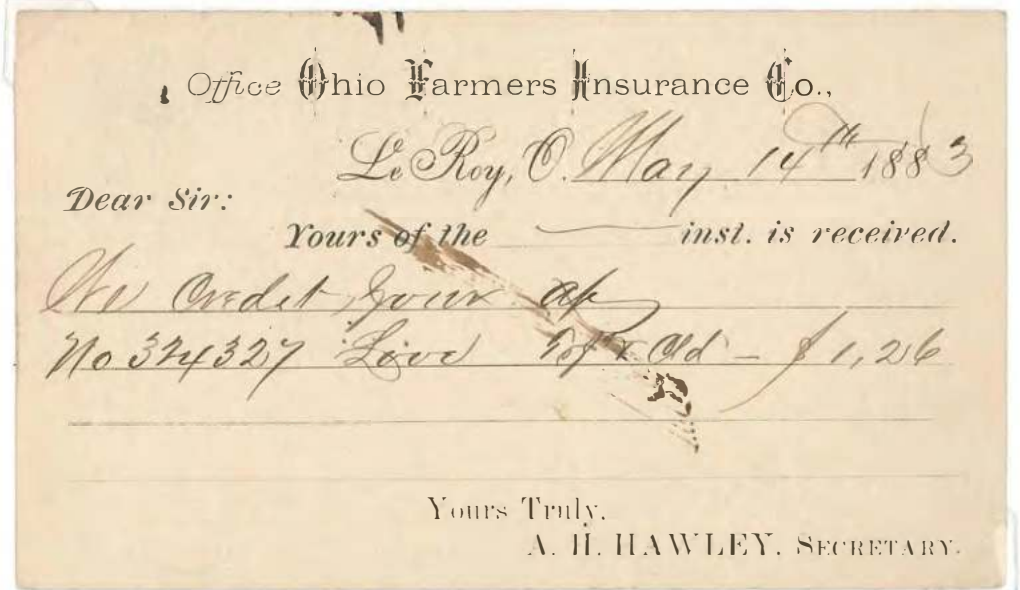 Office Ohio Farmers Insurance Co.,
Le Roy, O. May 14th 1883
Dear Sir:
Yours of the inst. is received.
We Credit your
No 324327 & Old - $1,26
Yours Truly,
A. H. HAWLEY, SECRETARY.